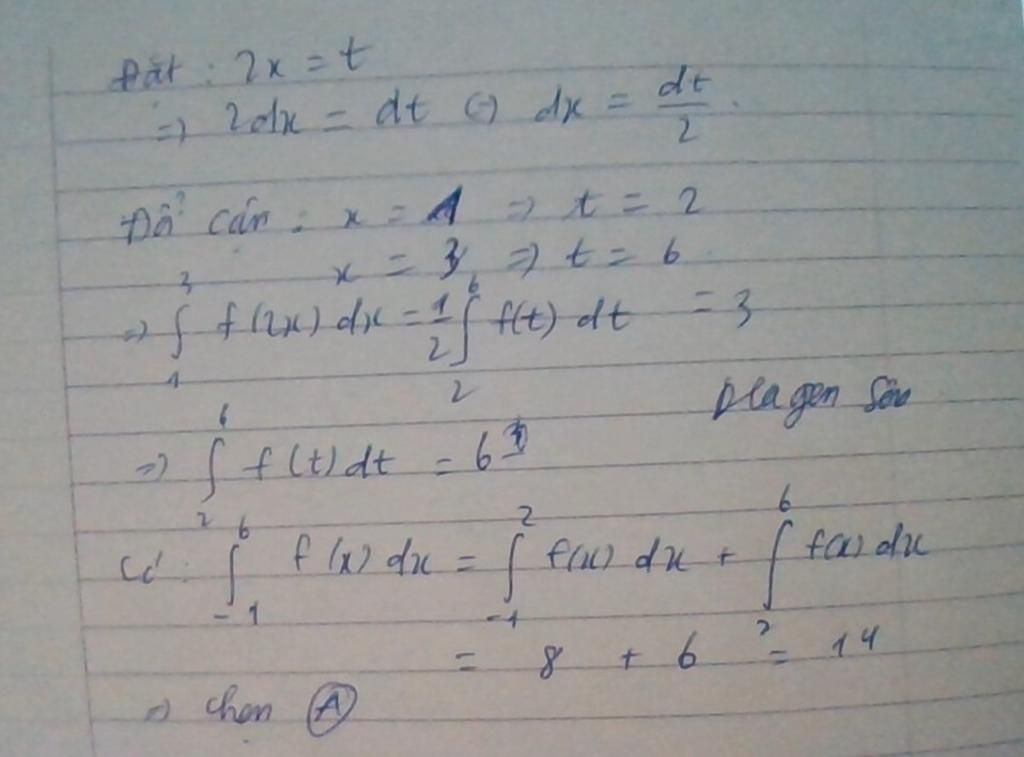 Đặt : 2x = t
=> 2dx = dt <=> dx = dt/2 .
Đổi cận : x = 1 => t = 2
x = 3 => t = 6
=> ∫₁³ f(2x) dx = 1/2 ∫₂⁶ f(t) dt = 3
Dragon Sóu
=> ∫₂⁶ f(t) dt = 6
Có : ∫₋₁⁶ f(x) dx = ∫₋₁² f(x) dx + ∫₂⁶ f(x) dx
= 8 + 6 = 14
=> Chọn A